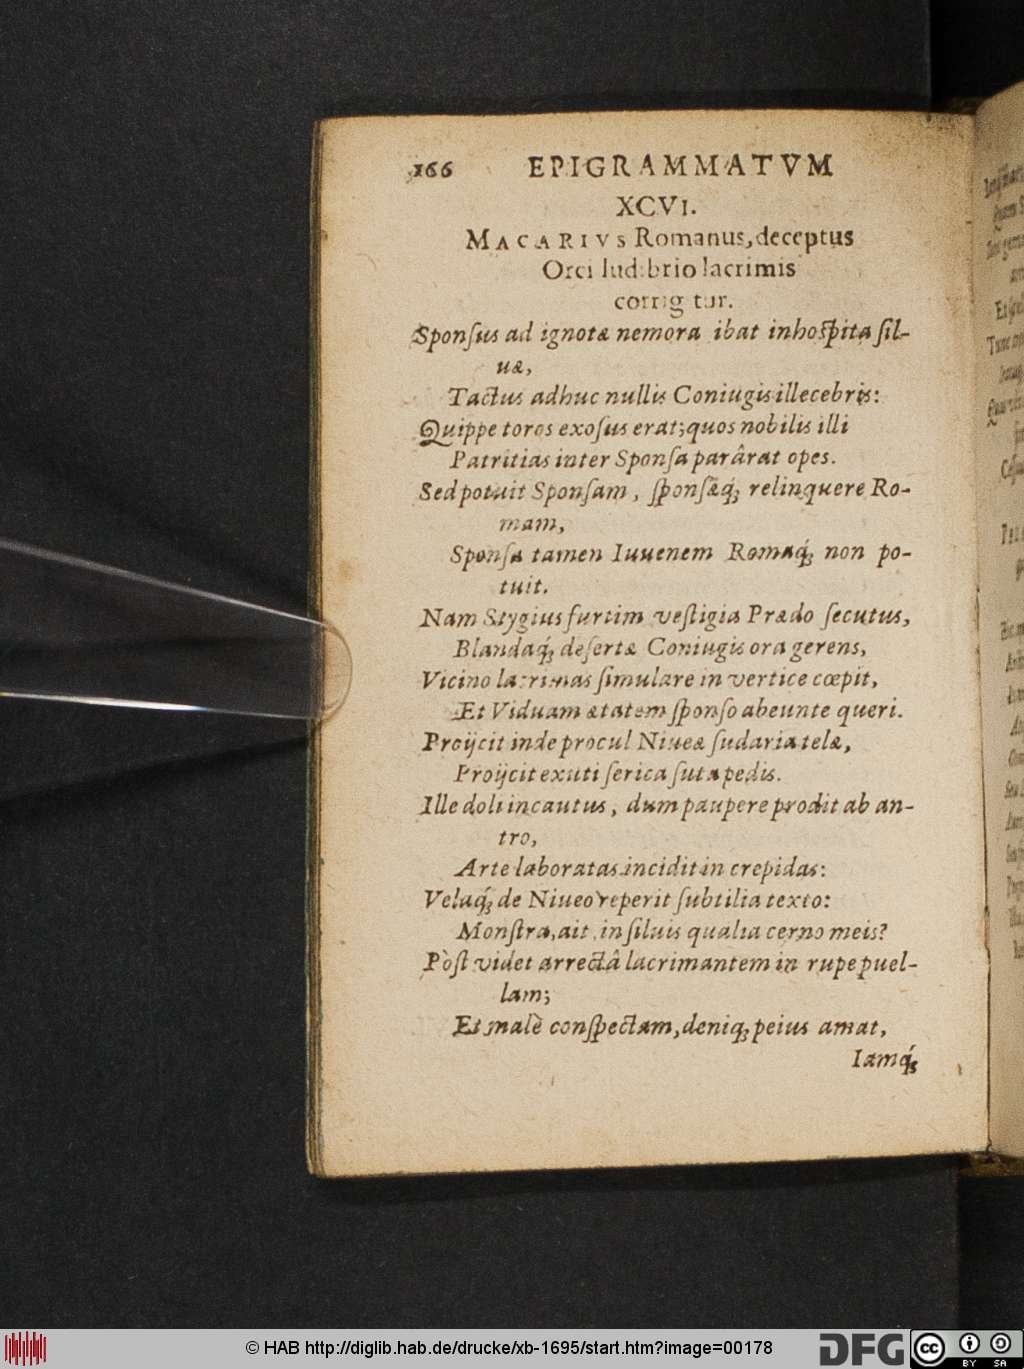 166 EPIGRAMMATVM
XCVI.
MACARIVS Romanus, deceptus
Orci ludibrio lacrimis
corrig tur.
Sponſus ad ignotæ nemora ibat inhoſpita ſil-
uæ,
Tactus adhuc nullis Coniugis illecebris:
Quippe toros exoſus erat; quos nobilis illi
Patritias inter Sponſa parârat opes.
Sed potuit Sponſam, ſponſæq́; relinquere Ro-
mam,
Sponſa tamen Iuuenem Romaq́; non po-
tuit.
Nam Stygius furtim veſtigia Prædo ſecutus,
Blandaq́; deſertæ Coniugis ora gerens,
Vicino lacrimas ſimulare in vertice cœpit,
Et Viduam ætatem ſponſo abeunte queri.
Proijcit inde procul Niueæ ſudaria telæ,
Proijcit exuti ſerica ſuta pedis.
Ille doli incautus, dum paupere prodit ab an-
tro,
Arte laboratas incidit in crepidas:
Velaq́; de Niueo reperit ſubtilia texto:
Monſtra, ait, in ſiluis qualia cerno meis?
Pòſt videt arrectâ lacrimantem in rupe puel-
lam;
Et malè conſpectam, deniq; peius amat,
Iamq́;
© HAB http://diglib.hab.de/drucke/xb-1695/start.htm?image=00178
DFG
cc BY SA